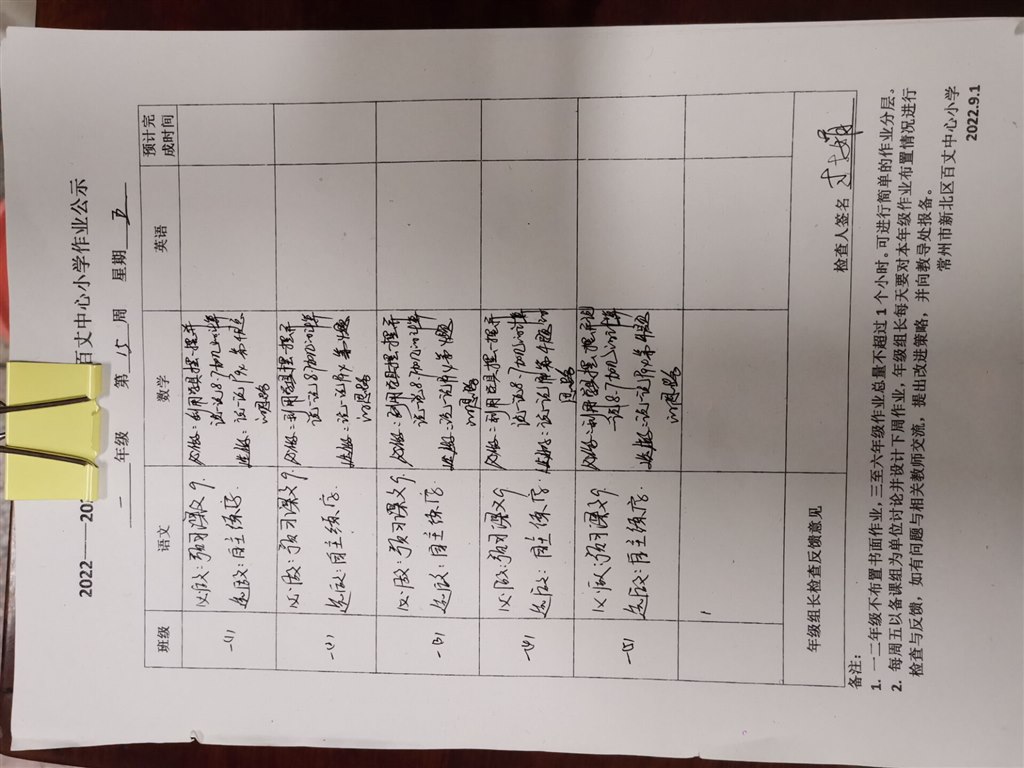 2022——20
百丈中心小学作业公示
一 年级 第 15 周 星期 五
班级 语文 数学 英语 预计完成时间
一(1)
必做:预习课文9.
选做:自主练序.
必做:利用学具摆一摆并
说一说8、7加几的计算
选做:说一说P91第4题
的思路
一(2)
必做:预习课文9.
选做:自主练序.
必做:利用学具摆一摆并
说一说8、7加几的计算
选做:说一说P91第4题
的思路
一(3)
必做:预习课文9.
选做:自主练序.
必做:利用学具摆一摆并
说一说8、7加几的计算
选做:说一说P91第4题
的思路
一(4)
必做:预习课文9.
选做:自主练序.
必做:利用学具摆一摆并
说一说8、7加几的计算
选做:说一说P91第4题的
思路
一(5)
必做:预习课文9.
选做:自主练序.
必做:利用学具摆一摆并说
一说8、7加几的计算
选做:说一说P91第4题
的思路
年级组长检查反馈意见 检查人签名
备注:
1. 一二年级不布置书面作业,三至六年级作业总量不超过 1 个小时。可进行简单的作业分层。
2. 每周五以备课组为单位讨论并设计下周作业,年级组长每天要对本年级作业布置情况进行
检查与反馈,如有问题与相关教师交流,提出改进策略,并向教导处报备。
常州市新北区百丈中心小学
2022.9.1